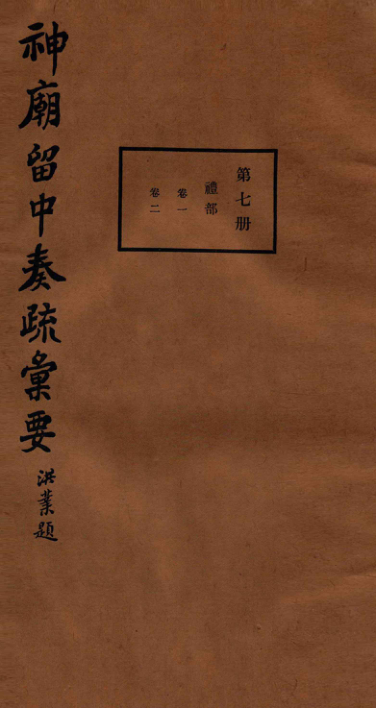 第七册
禮部
卷一
卷二
神廟留中奏疏彙要
洪業題